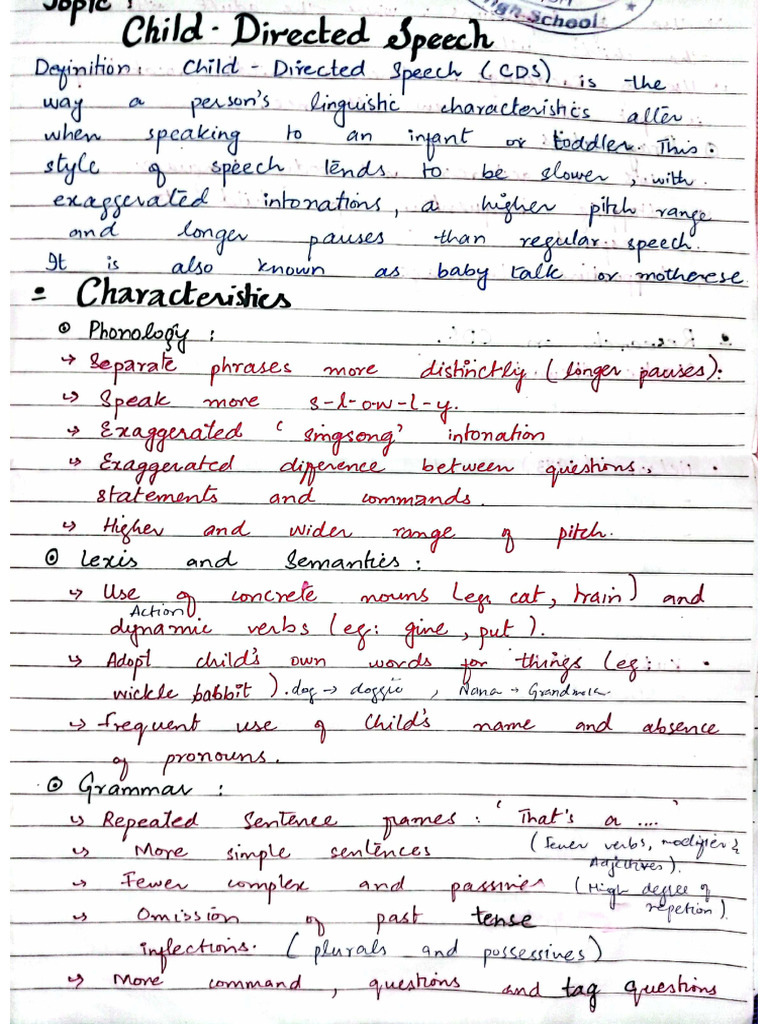 Topic :
High School
Child - Directed Speech
Definition: Child - Directed Speech (CDS) is the
way a person's linguistic characteristics alter
when speaking to an infant or toddler. This
style of speech tends to be slower, with
exaggerated intonations, a higher pitch range
and longer pauses than regular speech.
It is also known as baby talk or motherese
= Characteristics
Phonology :
→ Separate phrases more distinctly (longer pauses).
→ Speak more s-l-o-w-l-y.
→ Exaggerated 'singsong' intonation
→ Exaggerated difference between questions,
statements and commands.
→ Higher and wider range of pitch.
Lexis and Semantics :
→ Use of concrete nouns (eg. cat, train) and
Action
dynamic verbs (eg: give, put).
→ Adopt child's own words for things (eg:
wickle babbit). dog → doggie, Nana → Grandmola.
→ frequent use of Child's name and absence
of pronouns.
Grammar :
→ Repeated Sentence frames : 'That's a ....'
→ More simple sentences (fewer verbs, modifier &
Adjectives).
→ Fewer complex and passives (High degree of
repetion).
→ Omission of past tense
inflections. (plurals and possessives)
→ More command, questions and tag questions